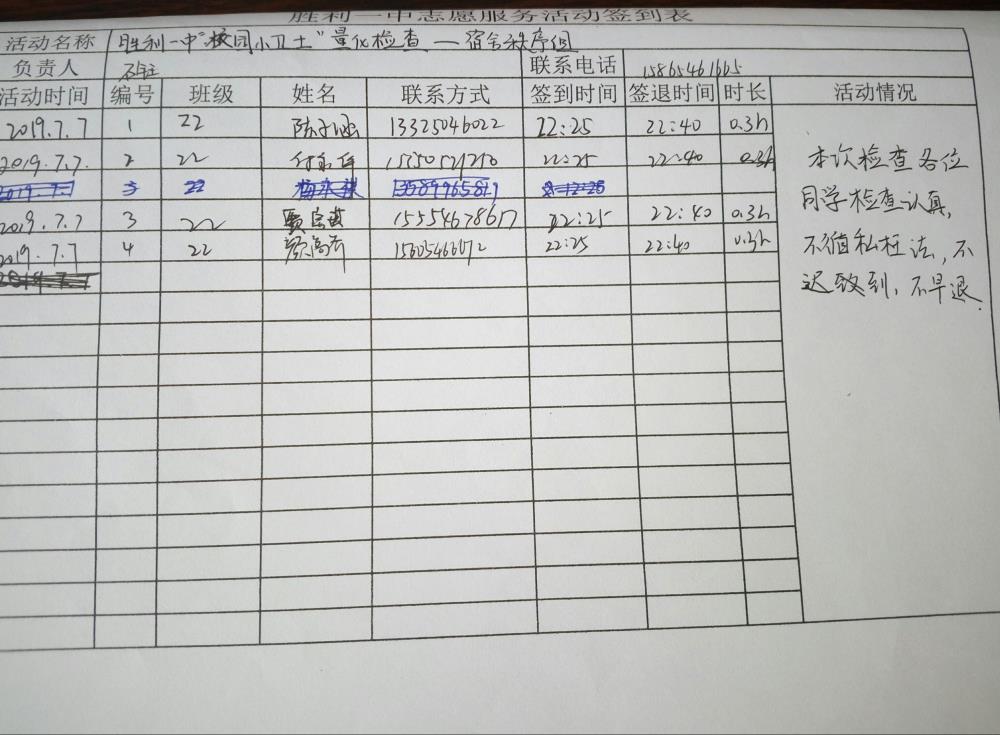 胜利一中志愿服务活动签到表
活动名称 胜利一中"校园小卫士"量化检查—宿舍秩序组
负责人 联系电话 15865461665
活动时间 编号 班级 姓名 联系方式 签到时间 签退时间 时长 活动情况
2019.7.7 1 22 陈子涵 13325046022 22:25 22:40 0.3h
2019.7.7. 2 22 22:25 22:40 0.3h
2019.7.7 3 22
2019.7.7 3 22 15554678617 22:25 22:40 0.3h
2019.7.7 4 22 15605466672 22:25 22:40 0.3h
2019.7.7
本次检查各位
同学检查认真,
不徇私枉法,不
迟致到,不早退.